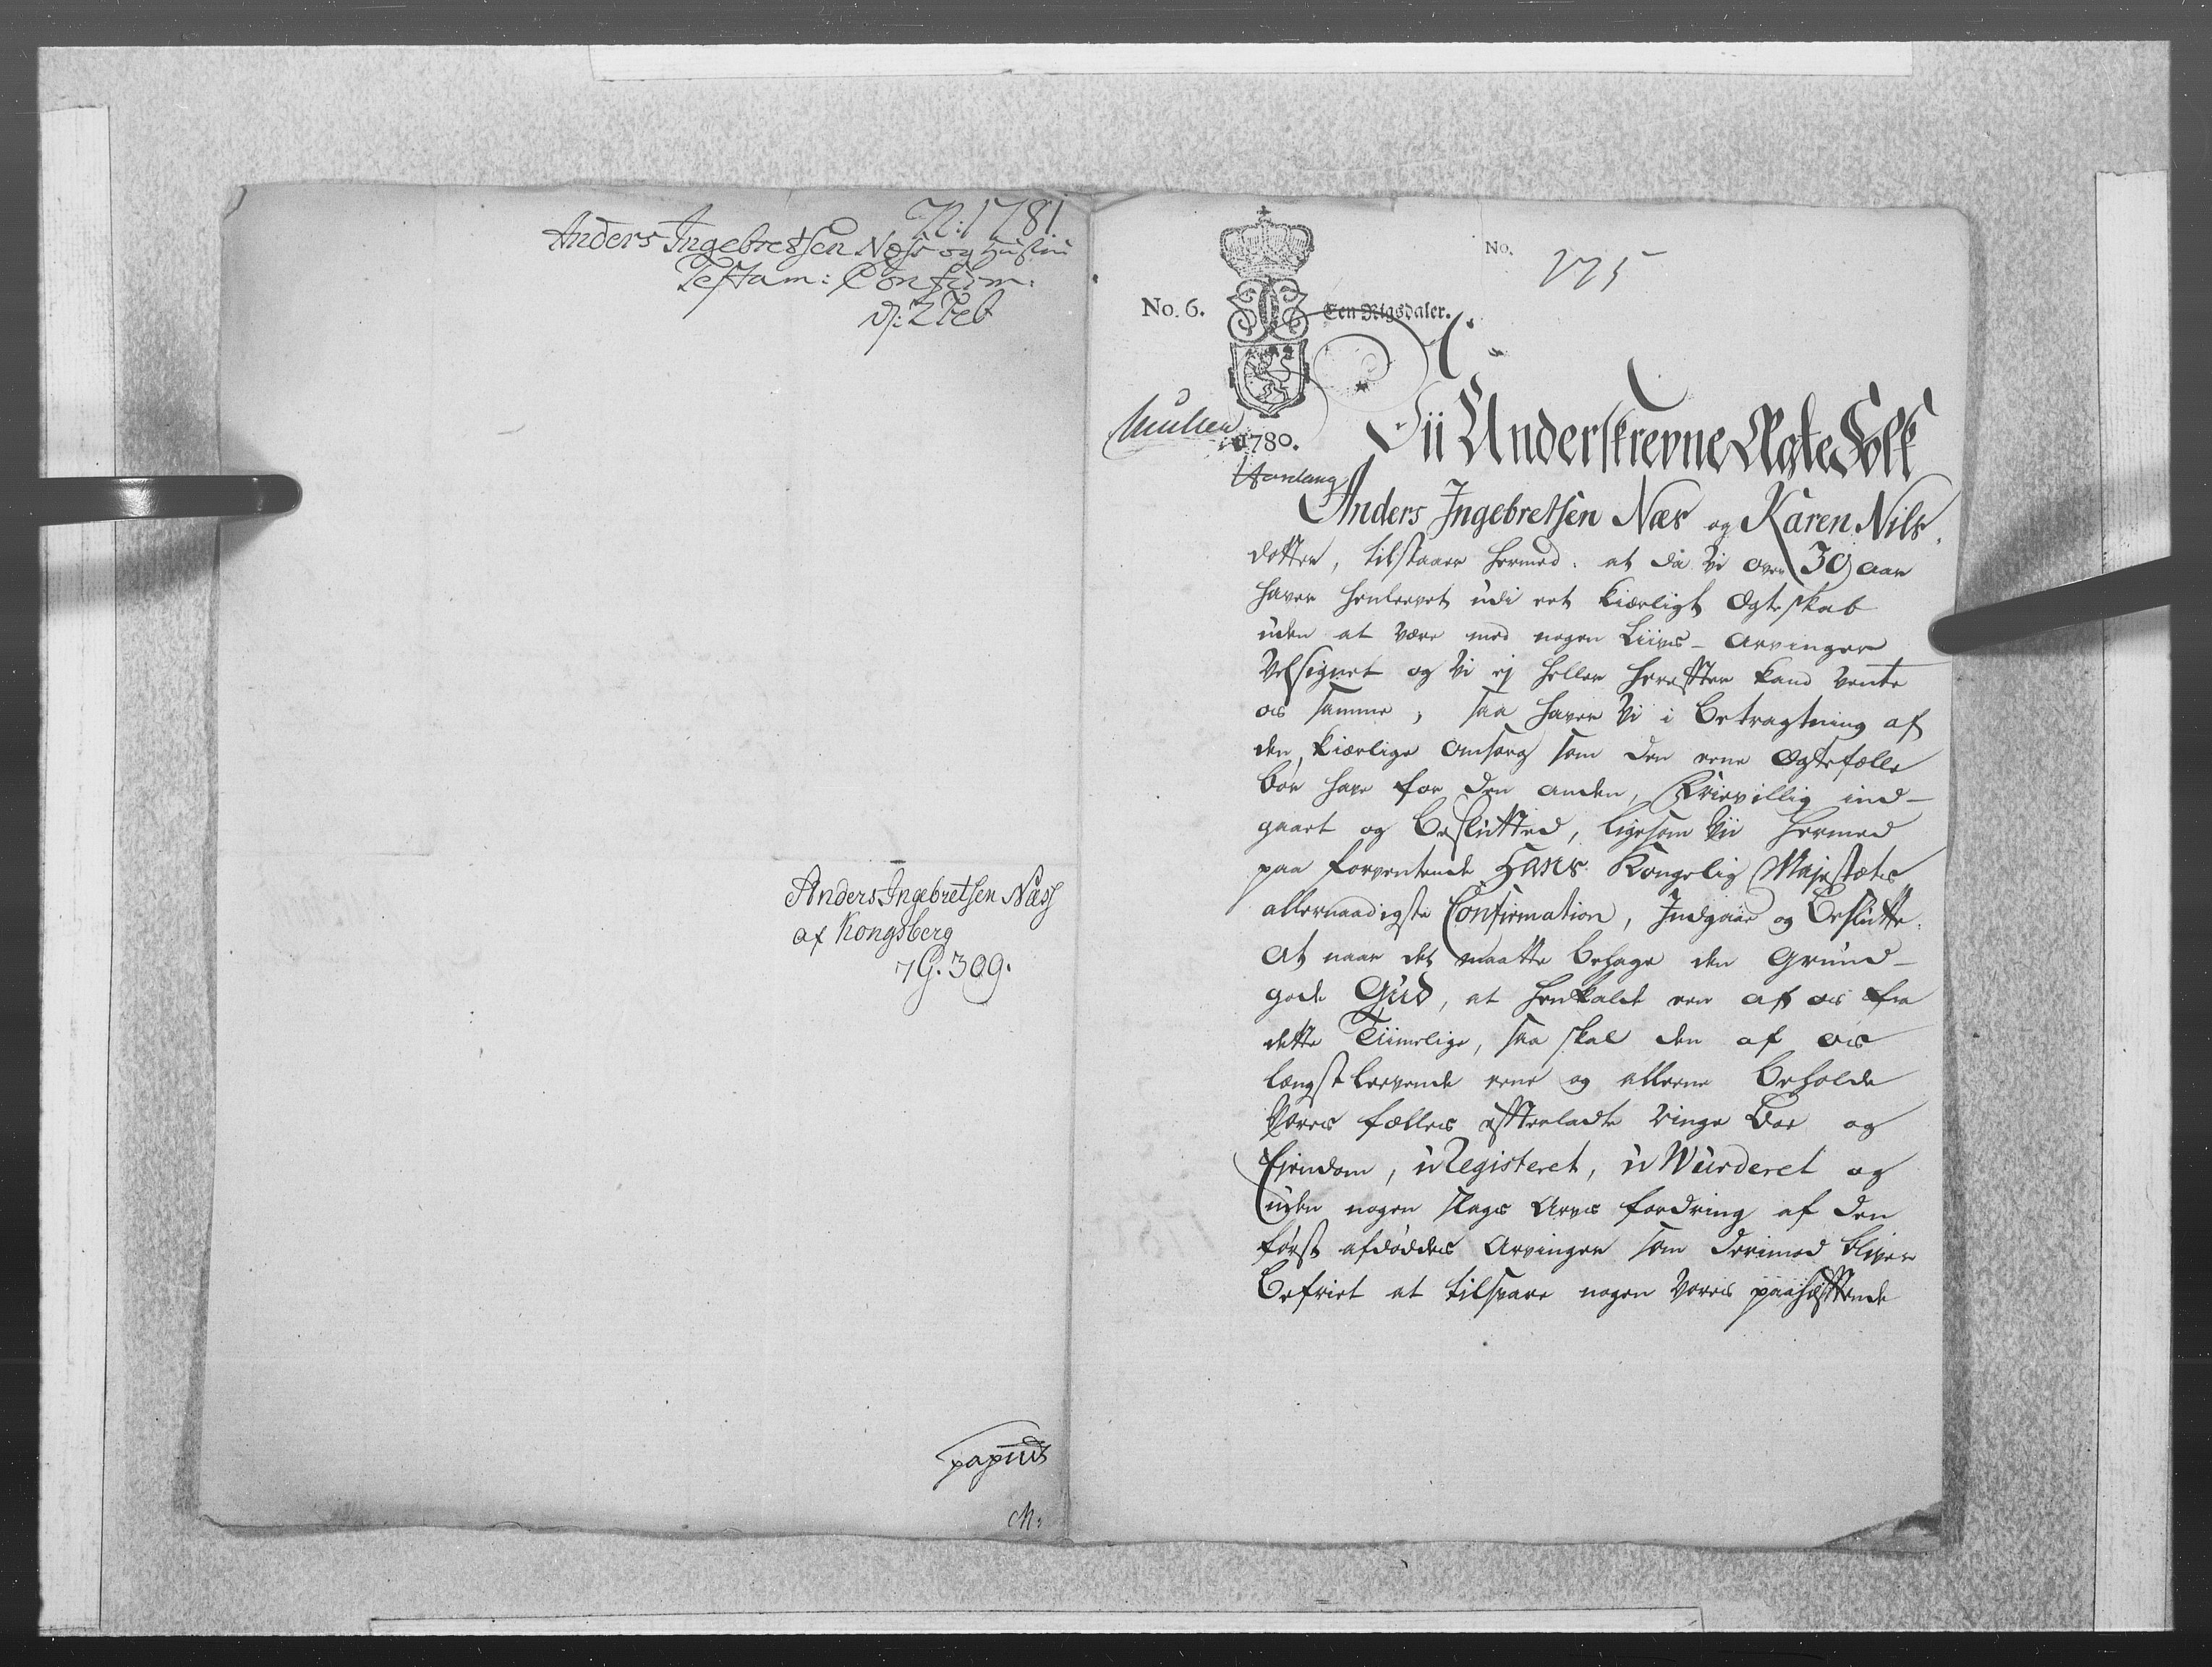 N: 1781
Anders Ingebretsen Næss og Hustru
Testam: Confirm:
D: 2 Feb
Anders Ingebretsen Næss
af Kongsberg
7 G. 309.
papiirs
M:
No.
225
No. 6.
Een Rigsdaler.
1780.
Vii Underskrevne Ægte Folk
Anders Ingebretsen Næs og Karen Nils
dotter, tilstaaer hermed: at da Vi over 30 aar
haver henleevet udi eet kierligt Ægteskab
uden at være med nogen Liivs-Arvinger
Velsignet og Vi ej heller herefter kand vente
os samme, saa haver Vi i betragtning af
den kiærlige Omsorg som den eene Ægtefælle
bør have for den anden, Frievillig ind-
gaaet og beslutted, ligesom Vii hermed
paa forventende Hans Kongelig Majestæts
allernaadigste Confirmation, Indgaar og beslutte.
At naar det maatte behage den Grund-
gode Gud, at henkalde een af os fra
dette Tiimelige, saa skal den af os
længstlevende eene og alleene beholde
Vores fælles efterladte ringe boe og
Eiendom, uRegisteret, uWurderet og
uden nogen slags Arvs fordring af den
først afdøddes Arvinger som derimod bliver
befriet at tilsvare nogen Vores paahæftende